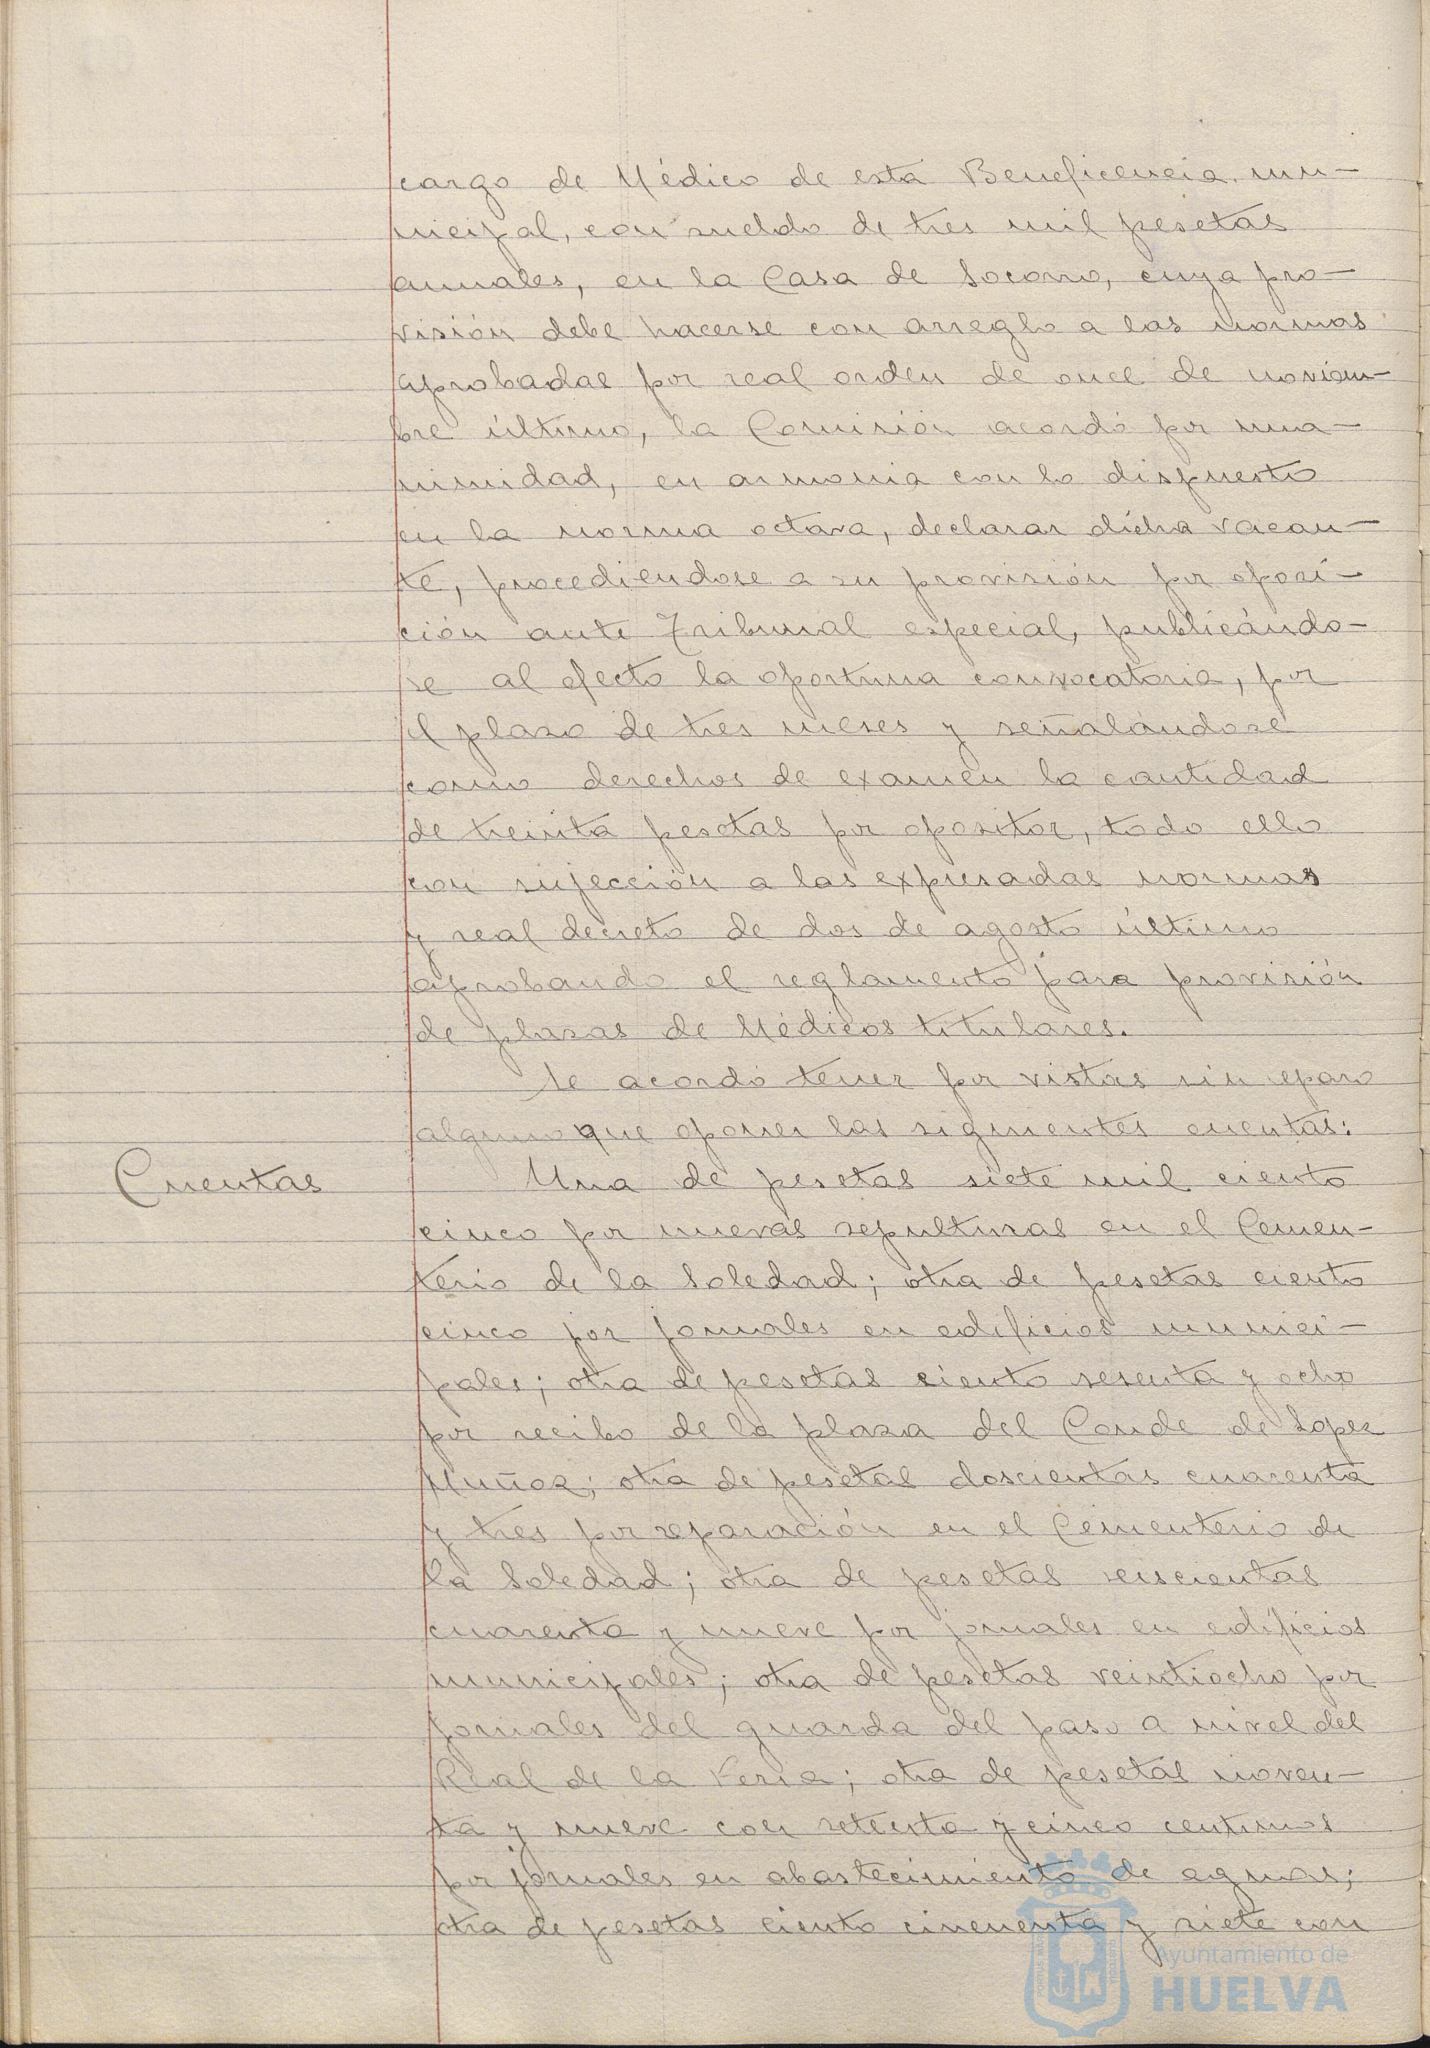 cargo de Médico de esta Beneficencia mu-
nicipal, con sueldo de tres mil pesetas
anuales, en la Casa de Socorro, cuya pro-
visión debe hacerse con arreglo a las normas
aprobadas por real orden de once de noviem-
bre último, la Comisión acordó por una-
nimidad, en armonia con lo dispuesto
en la norma octava, declarar dicha vacan-
te, procediendose a su provisión por oposi-
ción ante Tribunal especial, publicándo-
se al efecto la oportuna convocatoria, por
el plazo de tres meses y señalándose
como derechos de examen la cantidad
de treinta pesetas por opositor, todo ello
con sujección a las expresadas normas
y real decreto de dos de agosto último
aprobando el reglamento para provisión
de plazas de Médicos titulares.
Se acordó tener por vistas sin reparo
alguno que oponer las siguientes cuentas:
Cuentas
Una de pesetas siete mil ciento
cinco por nuevas sepulturas en el Cemen-
terio de la Soledad; otra de pesetas ciento
cinco por jornales en edificios munici-
pales; otra de pesetas ciento sesenta y ocho
por recibo de la plaza del Conde de Lopez
Muñoz; otra de pesetas doscientas cuarenta
y tres por reparación en el Cementerio de
la Soledad; otra de pesetas seiscientas
cuarenta y nueve por jornales en edificios
municipales; otra de pesetas veintiocho por
jornales del guarda del paso a nivel del
Real de la Feria; otra de pesetas noven-
ta y nueve con setenta y cinco centimos
por jornales en abastecimiento de aguas;
otra de pesetas ciento cincuenta y siete con
Ayuntamiento de
HUELVA